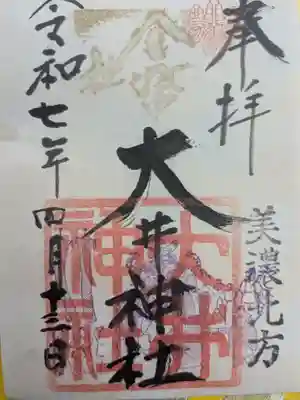 奉拝
美濃比方
大井神社
大井神社
令和七年四月十三日